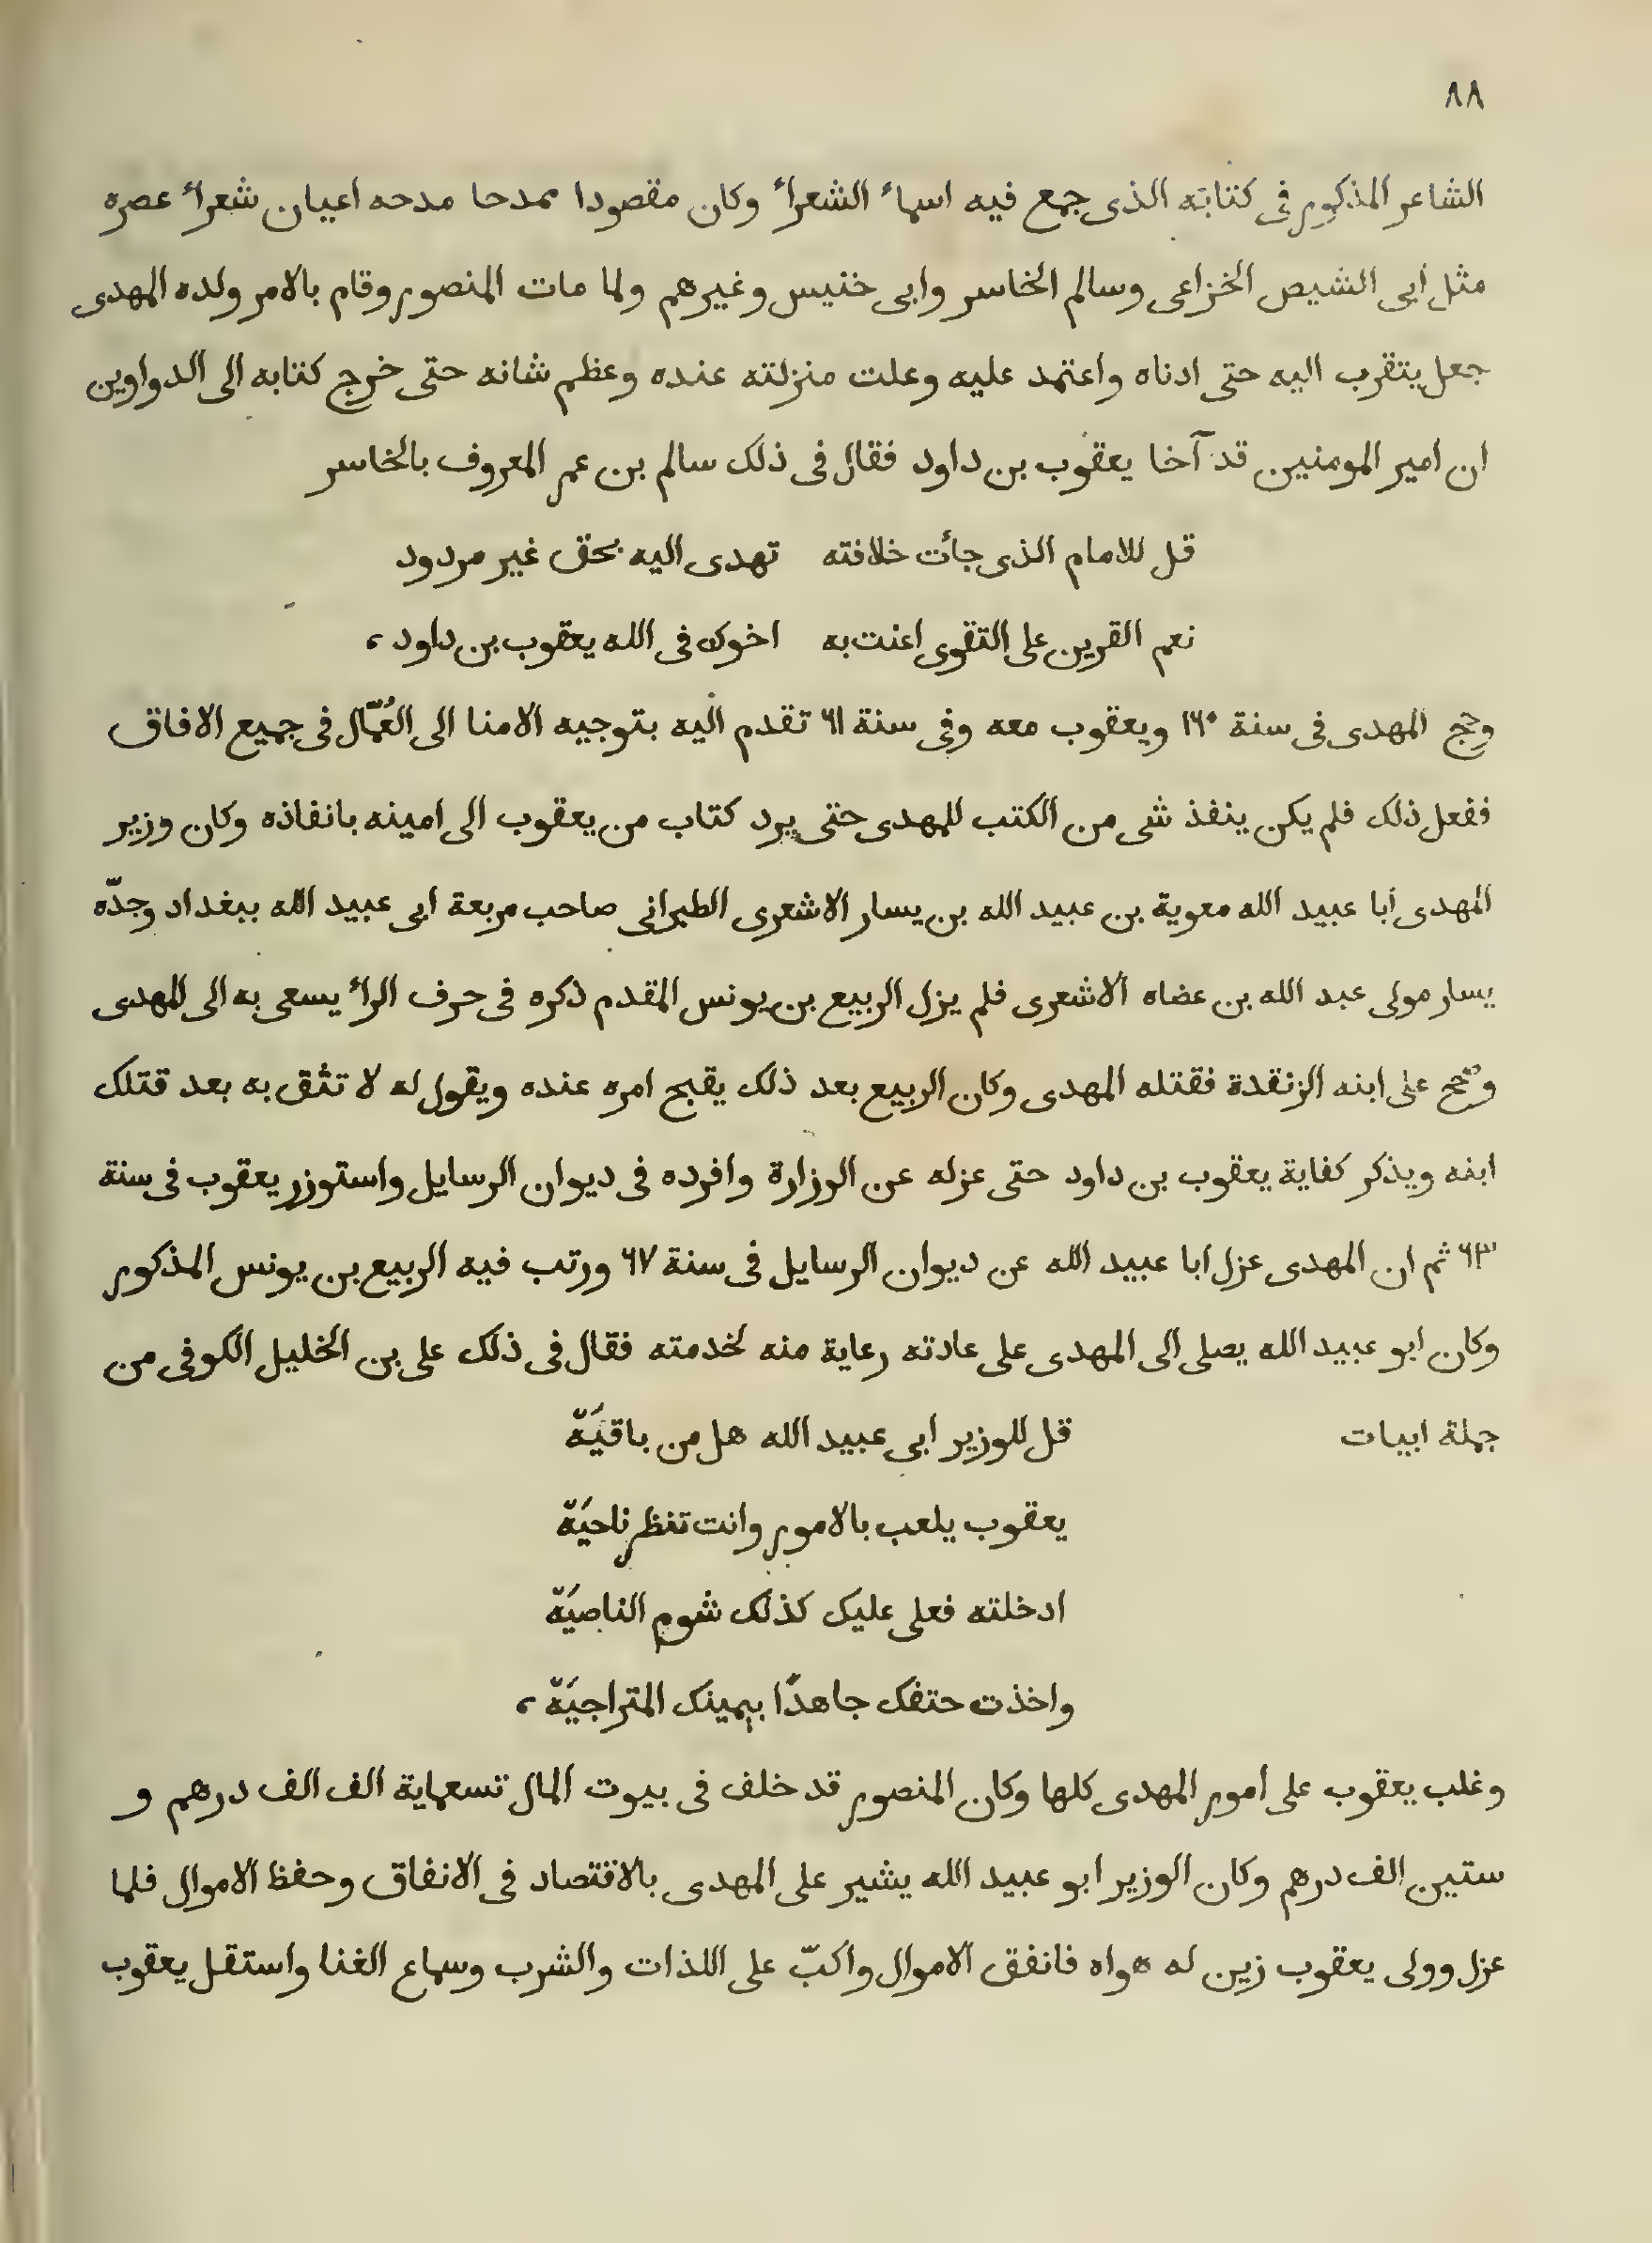 ٨٨
الشاعر المذكور فى كتابَه الذى جمع فيه اسمأ الشعرأ وكان مقصودا ممدحا مدحه اعيان شعرأ عصره
مثل ابى الشيص الخزاعى وسالم الخاسر وابى خنيس وغيرهم ولما مات المنصور وقام بالامر ولده المهدى
جعل يتقرب اليه حتى ادناه واعتمد عليه وعلت منزلته عنده وعظم شانه حتى خرج كتابه الى الدواوين
ان امير المومنين قد آخا يعقوب بن داود فقال فى ذلك سالم بن عمر المعروف بالخاسر
قل للامام الذى جأت خلافته تهدى اليه بحق غير مردود
نعم القرين على التقوى اعنت به اخوك فى الله يعقوب بن داود ،
وحج المهدى فى سنة ١٦٠ ويعقوب معه وفى سنة ٦١ تقدم اليه بتوجيه الامنا الى العُمّال فى جميع الافاق
ففعل ذلك فلم يكن ينفذ شى من الكتب للمهدى حتى يرد كتاب من يعقوب الى امينه بانفاذه وكان وزير
المهدى أبا عبيد الله معوية بن عبيد الله بن يسار الاشعرى الطبرانى صاحب مربعة ابى عبيد الله ببغداد وجدّه
يسار مولى عبد الله بن عضاه الاشعرى فلم يزل الربيع بن يونس المقدم ذكره فى حرف الرأ يسعى به الى المهدى
وصحح على ابنه الزنقدة فقتله المهدى وكان الربيع بعد ذلك يقبح امره عنده ويقول له لا تثق به بعد قتلك
ابنه ويذكر كفاية يعقوب بن داود حتى عزله عن الوزارة وافرده فى ديوان الرسايل واستوزر يعقوب فى سنة
٦٣ ثم ان المهدى عزل ابا عبيد الله عن ديوان الرسايل فى سنة ٦٧ ورتب فيه الربيع بن يونس المذكور
وكان ابو عبيد الله يصلى الى المهدى على عادته رعاية منه لخدمته فقال فى ذلك على بن الخليل الكوفى من
جملة ابيات قل للوزير ابى عبيد الله هل من باقيَة
يعقوب يلعب بالامور وانت تنظر ناحيَة
ادخلته فعلى عليك كذلك شوم الناصيَة
واخذت حتفك جاهدًا بيمينك المتراجيَة ،
وغلب يعقوب على امور المهدى كلها وكان المنصور قد خلف فى بيوت المال تسعماية الف الف درهم و
ستين الف درهم وكان الوزير ابو عبيد الله يشير على المهدى بالاقتصاد فى الانفاق وحفظ الاموال فلما
عزل وولى يعقوب زين له هواه فانفق الاموال واكبّ على اللذات والشرب وسماع الغنا واستقل يعقوب